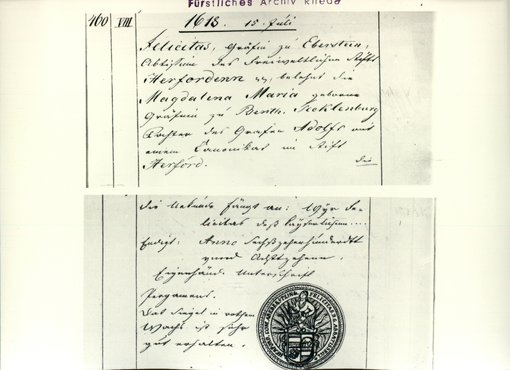 Fürstliches Archiv Rheda
460 VIII. 1618. 15. Juli
Felicitas, Gräfin zu Eberstein,
Äbtissin des Freiweltlichen Stifts
Herfordenn belehnt die
Magdalena Maria geborene
Gräfin zu Benth. Tecklenburg
Tochter des Grafen Adolfs mit
einem Canonikat im Stift
Herford.
Die
Die Urkunde fängt an: Wyr Fe-
licitas deß kayserlichen....
Endigt: Anno Sechßzehenhundertt
unnd Achttzehenn.
Eigenhänd. Unterschrift
Pergament.
Das Siegel in rothem
Wachs ist sehr
gut erhalten.